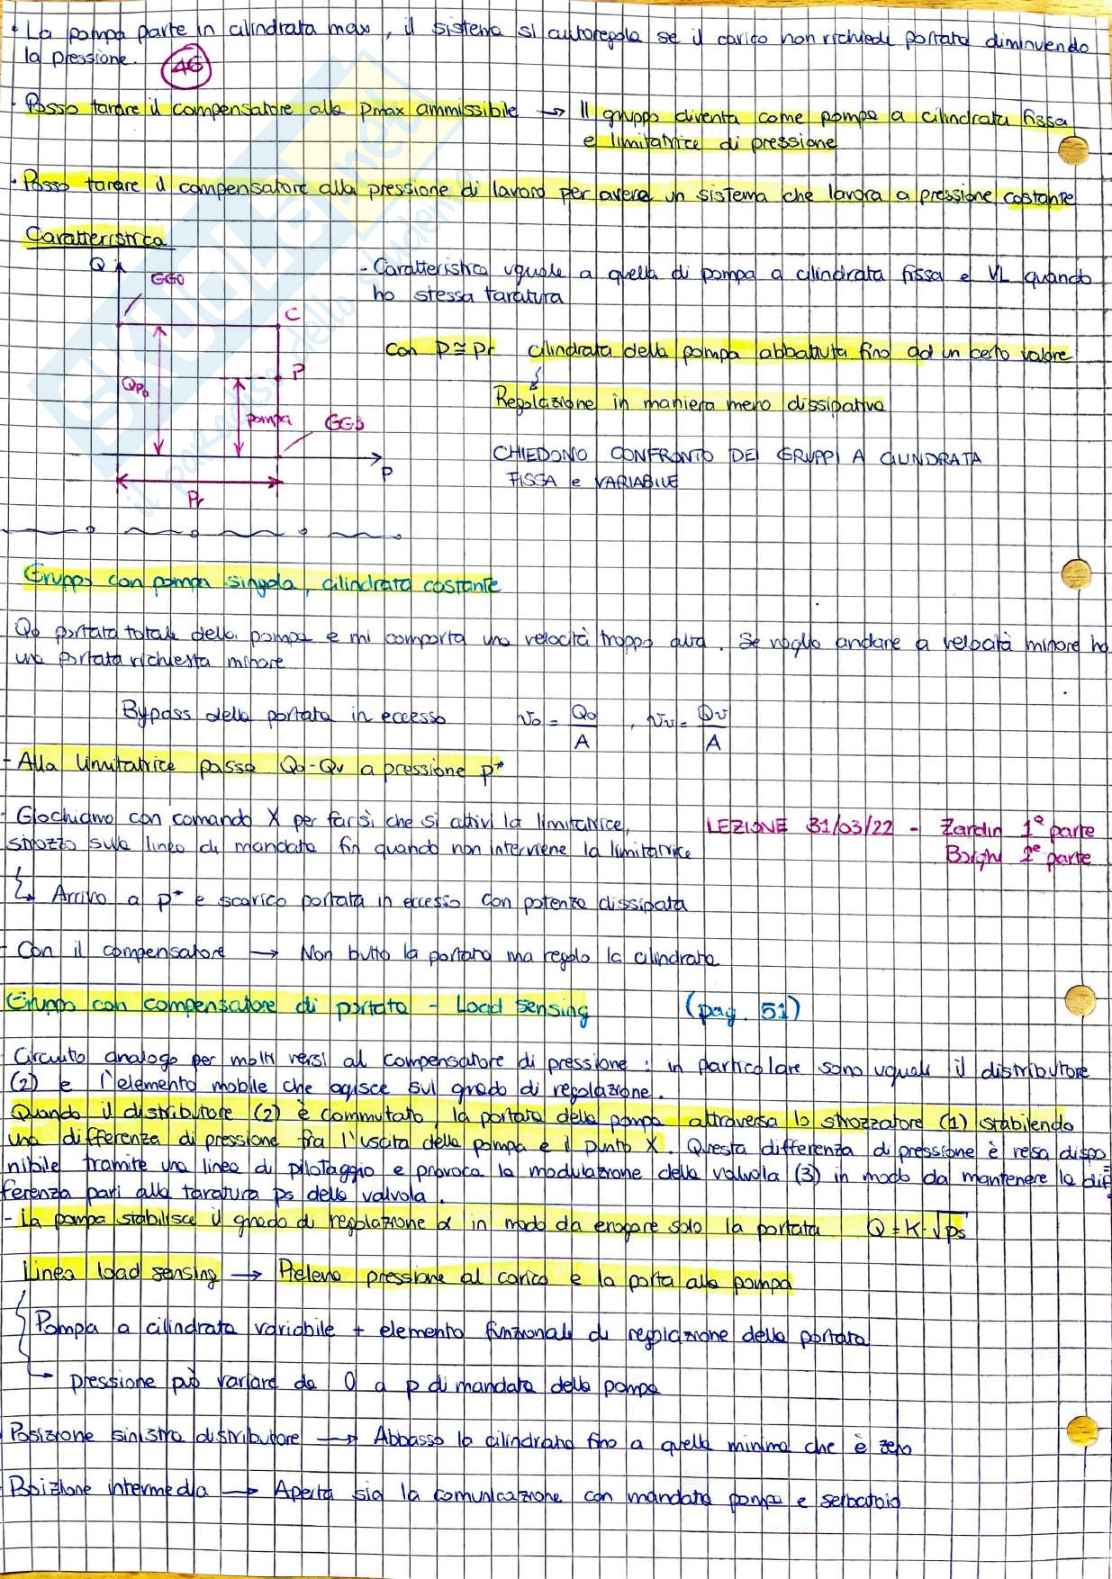 · La pompa parte in cilindrata max, il sistema si autoregola se il carico non richiede portata diminuendo
la pressione. 46
· Posso tarare il compensatore alla pmax ammissibile → Il gruppo diventa come pompa a cilindrata fissa
e limitatrice di pressione
· Posso tarare il compensatore alla pressione di lavoro per avere un sistema che lavora a pressione costante
Caratteristica
Q
GG0
- Caratteristica uguale a quella di pompa a cilindrata fissa e VL quando
ho stessa taratura
C
con p≅pr cilindrata della pompa abbattuta fino ad un certo valore
P
Qp0
pompa
Regolazione in maniera meno dissipativa
GGs
CHIEDONO CONFRONTO DEI GRUPPI A CILINDRATA
FISSA e VARIABILE
p
Pr
Gruppo con pompa singola, cilindrata costante
Qo portata totale della pompa e mi comporta una velocità troppo alta. Se voglio andare a velocità minore ho
una portata richiesta minore
Bypass della portata in eccesso vo = Qo/A , vu = Qu/A
- Alla limitatrice passa Qo-Qu a pressione p*
- Giochiamo con comando X per far sì che si attivi la limitatrice,
strozzo sulla linea di mandata fin quando non interviene la limitatrice
LEZIONE 31/03/22 - Zardin 1ª parte
Borghi 2ª parte
↳ Arrivo a p* e scarico portata in eccesso con potenza dissipata
- Con il compensatore → Non butto la portata ma regolo la cilindrata
Gruppo con compensatore di portata - Load Sensing (pag. 51)
Circuito analogo per molti versi al compensatore di pressione: in particolare sono uguali il distributore
(2) e l'elemento mobile che agisce sul grado di regolazione.
Quando il distributore (2) è commutato, la portata della pompa attraversa lo strozzatore (1) stabilendo
una differenza di pressione fra l'uscita della pompa e il punto X. Questa differenza di pressione è resa dispo
nibile tramite una linea di pilotaggio e provoca la modulazione della valvola (3) in modo da mantenere la dif
ferenza pari alla taratura ps della valvola.
- La pompa stabilisce il grado di regolazione α in modo da erogare solo la portata Q = K·√ps
Linea load sensing → Prelevo pressione al carico e la porta alla pompa
Pompa a cilindrata variabile + elemento funzionale di regolazione della portata
→ pressione può variare da 0 a p di mandata della pompa
Posizione sinistra distributore → Abbasso la cilindrata fino a quella minima che è zero
Posizione intermedia → Aperta sia la comunicazione con mandata pompa e serbatoio